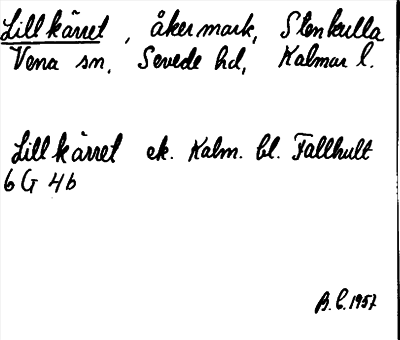 Lillkärret, åkermark, Stenkulla
Vena sn, Sevede hd, Kalmar l.
Lillkärret ek. Kalm. bl. Fallhult
6 G 4b
B.L. 1957